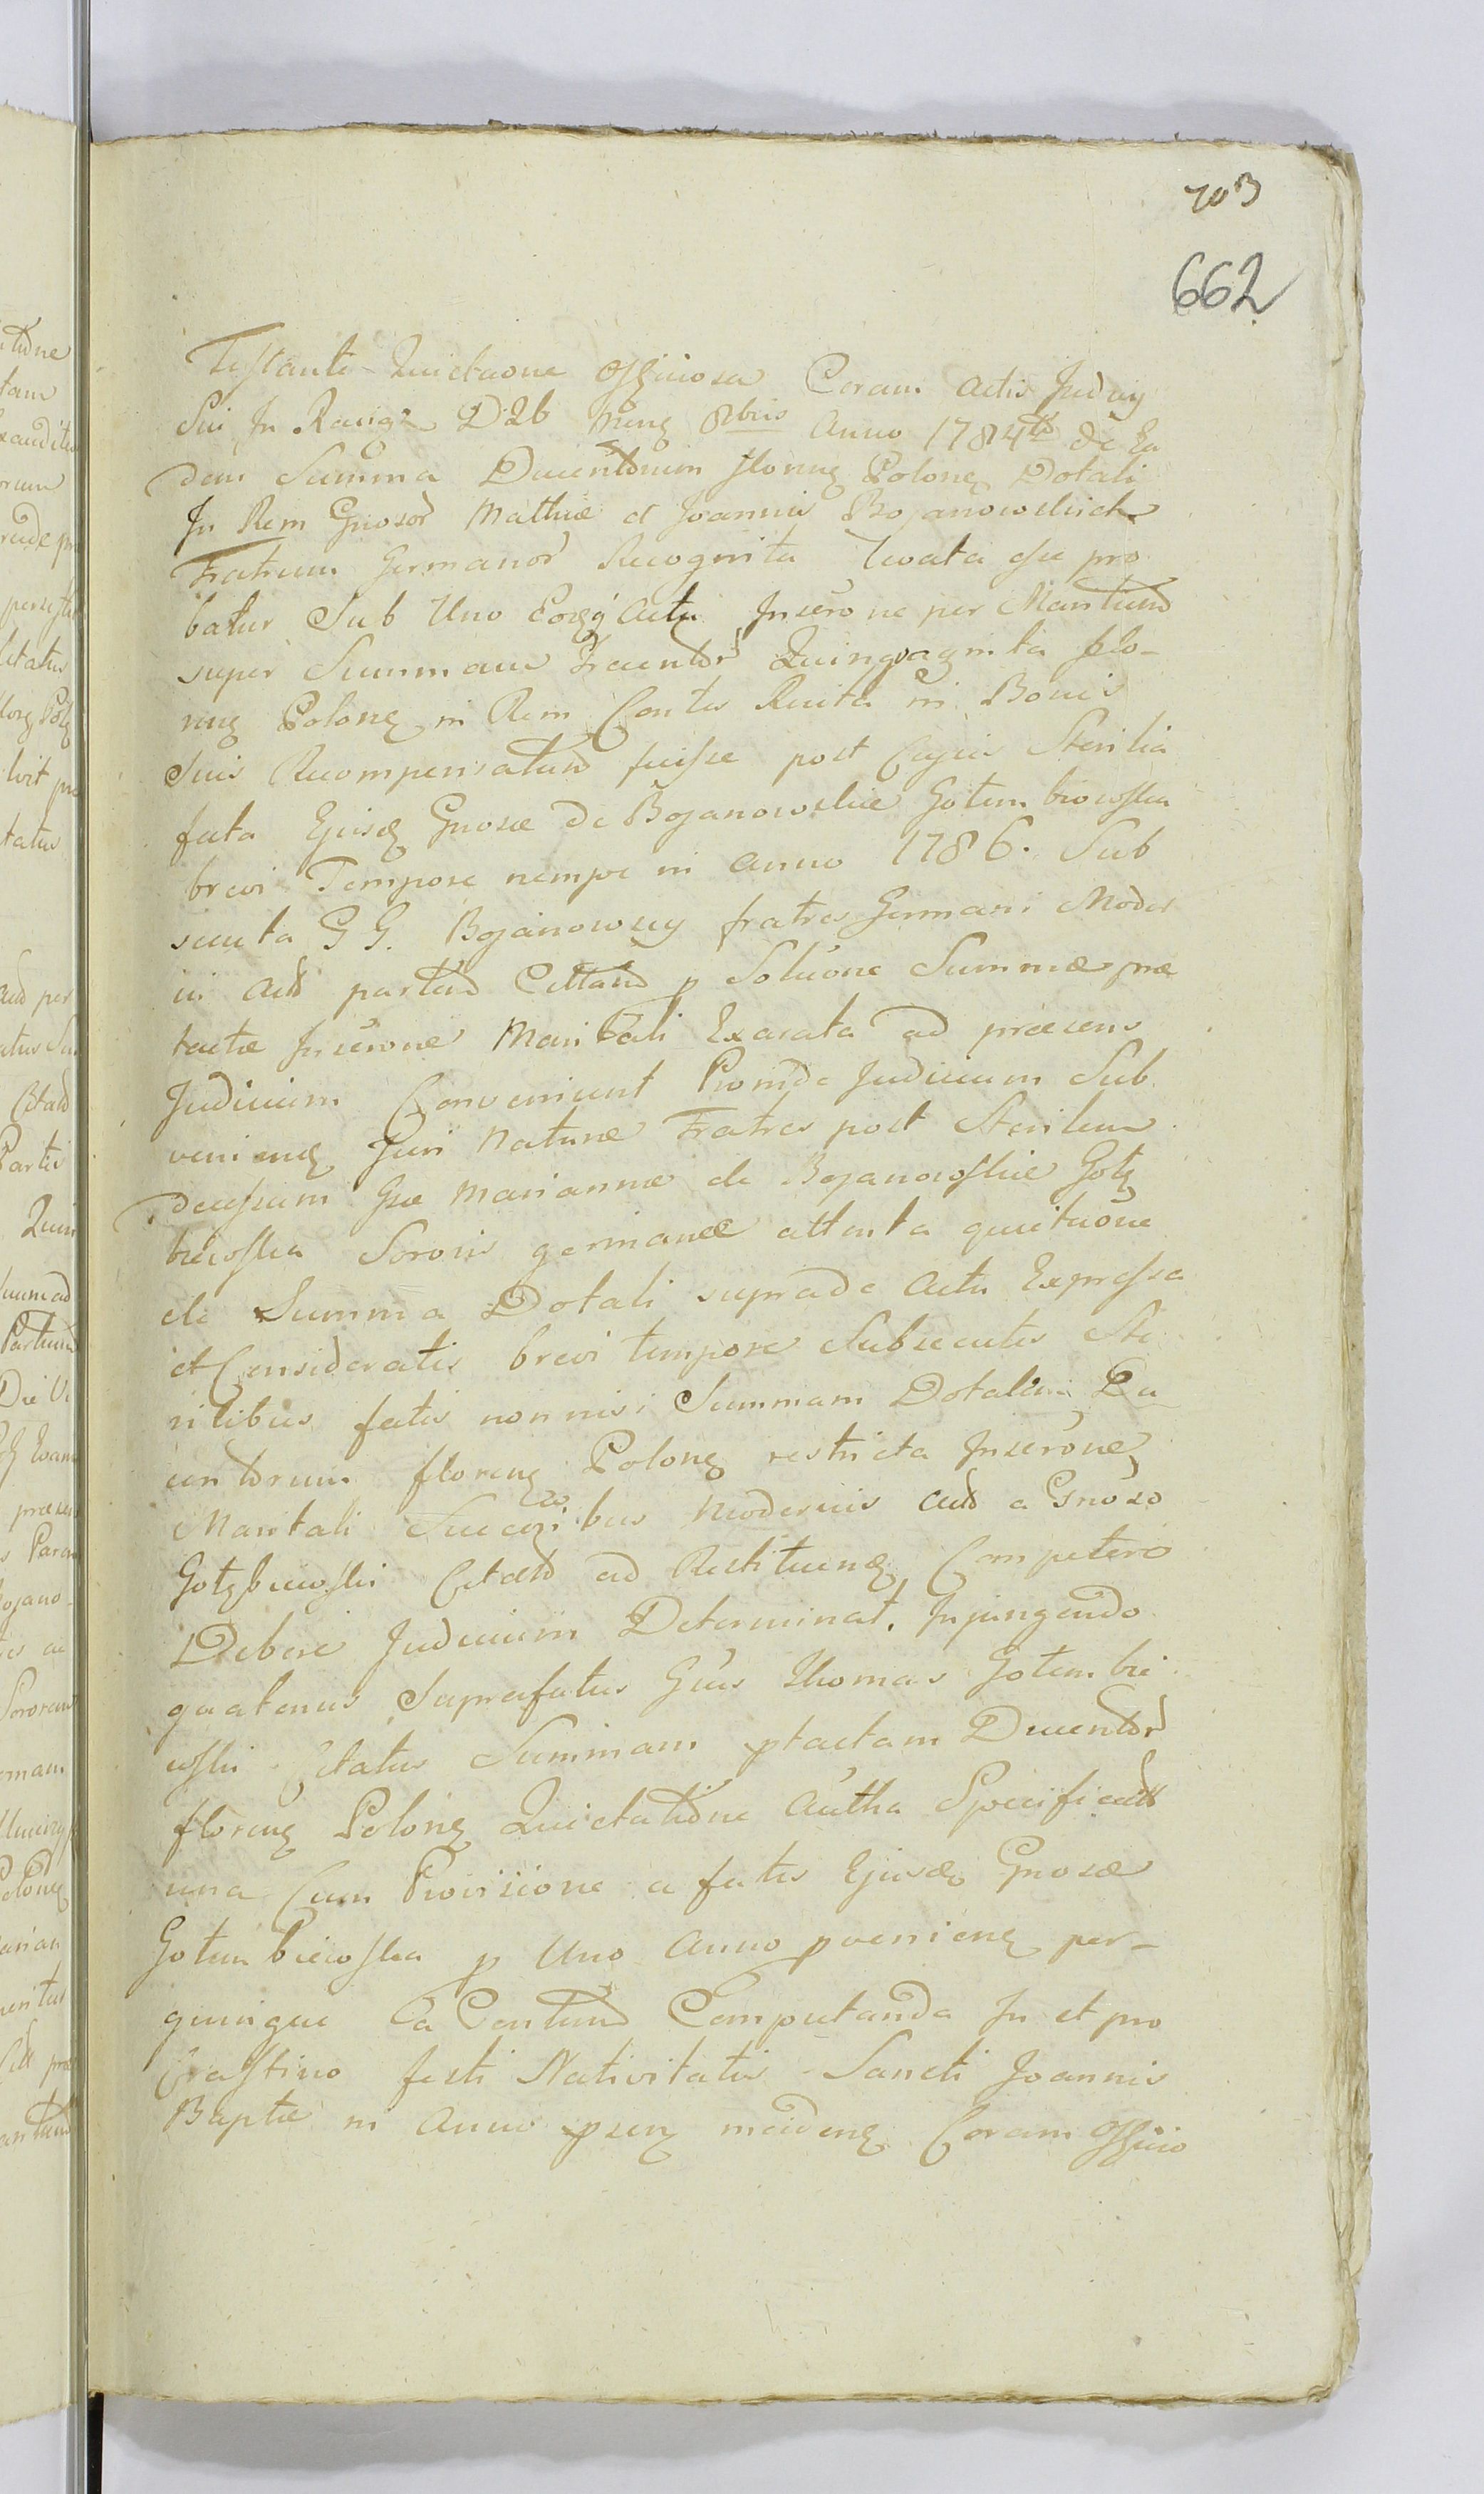 703
662
Testante Quietaõne Officiosa Coram Actis Judicij
Sui In Rawig D 26 Meng 8bris Anno 1784to de Ea
dem Summa Ducentorum florenq Polonq Dotali
In Rem Gnosor Mathiæ et Joannis Bojanowskich
Fratrum Germanor Recognita Levata esse pro
batur Sub Uno Eorgq Actu Inserõne per Maritum
super Summam Trecentor Quinquaginta flo-
renq Polonq in Rem Contis Recita in Bonis
Suis Recompensatum fuisse post Cujus Sterilia
fata Ejusdq Gnosæ de Bojanowskie Gotembiowska
brevi Tempore nempe in anno 1786. Sub
secuta G G. Bojanowscy fratres Germani Moder
ni Act partium Cittand p Soluõne Summæ præ
tactæ Inserõne Maritali Exarata ad præsens
Judicium Conveniunt Proinde Judicium Sub
venienq Juri Naturæ Fratres post Sterilem
decessum Gsæ Mariannæ de Bojanowskie Gotę
biewska Sororis germanæ attenta quietaõne
de Summa Dotali suprade Actu Expressa
et Consideratis brevi tempore Subsecutis Ste
rilibus fatis nonnisi Summam Dotalem Du
centorum florenq Polonq restricta Inserõne
Maritali Succeribus modernis Act a Gnoso
Gotębiewski Citato ad Restituenq Competere
Debere Judicium Determinat. Injungendo
quatenus Saprafatus Gsus Thomas Gotembie
wski Citatus Summam ptactam Ducentor
florenq Polonq Quietatione Autha Specificatt
una Cum Provisione a fatis Ejusdq Gnosæ
Gotembiewska p Uno Anno pvenienq per-
quinque a Centum Computanda In et pro
Crastino festi Nativitatis Sancti Joannis
Baptæ in Anno psenq incidenq Coram Officio